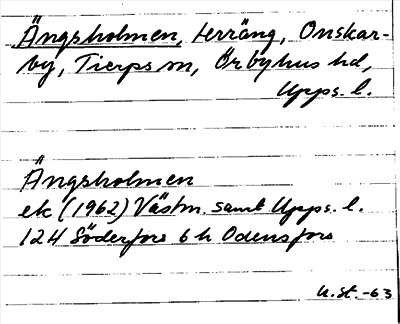 Ängsholmen, terräng, Onskar-
by, Tierps sn, Örbyhus hd,
Upps. l.
Ängsholmen
ek (1962) Västm. samt Upps. l.
12H Söderfors 6 h Odensfors
U. St. -63